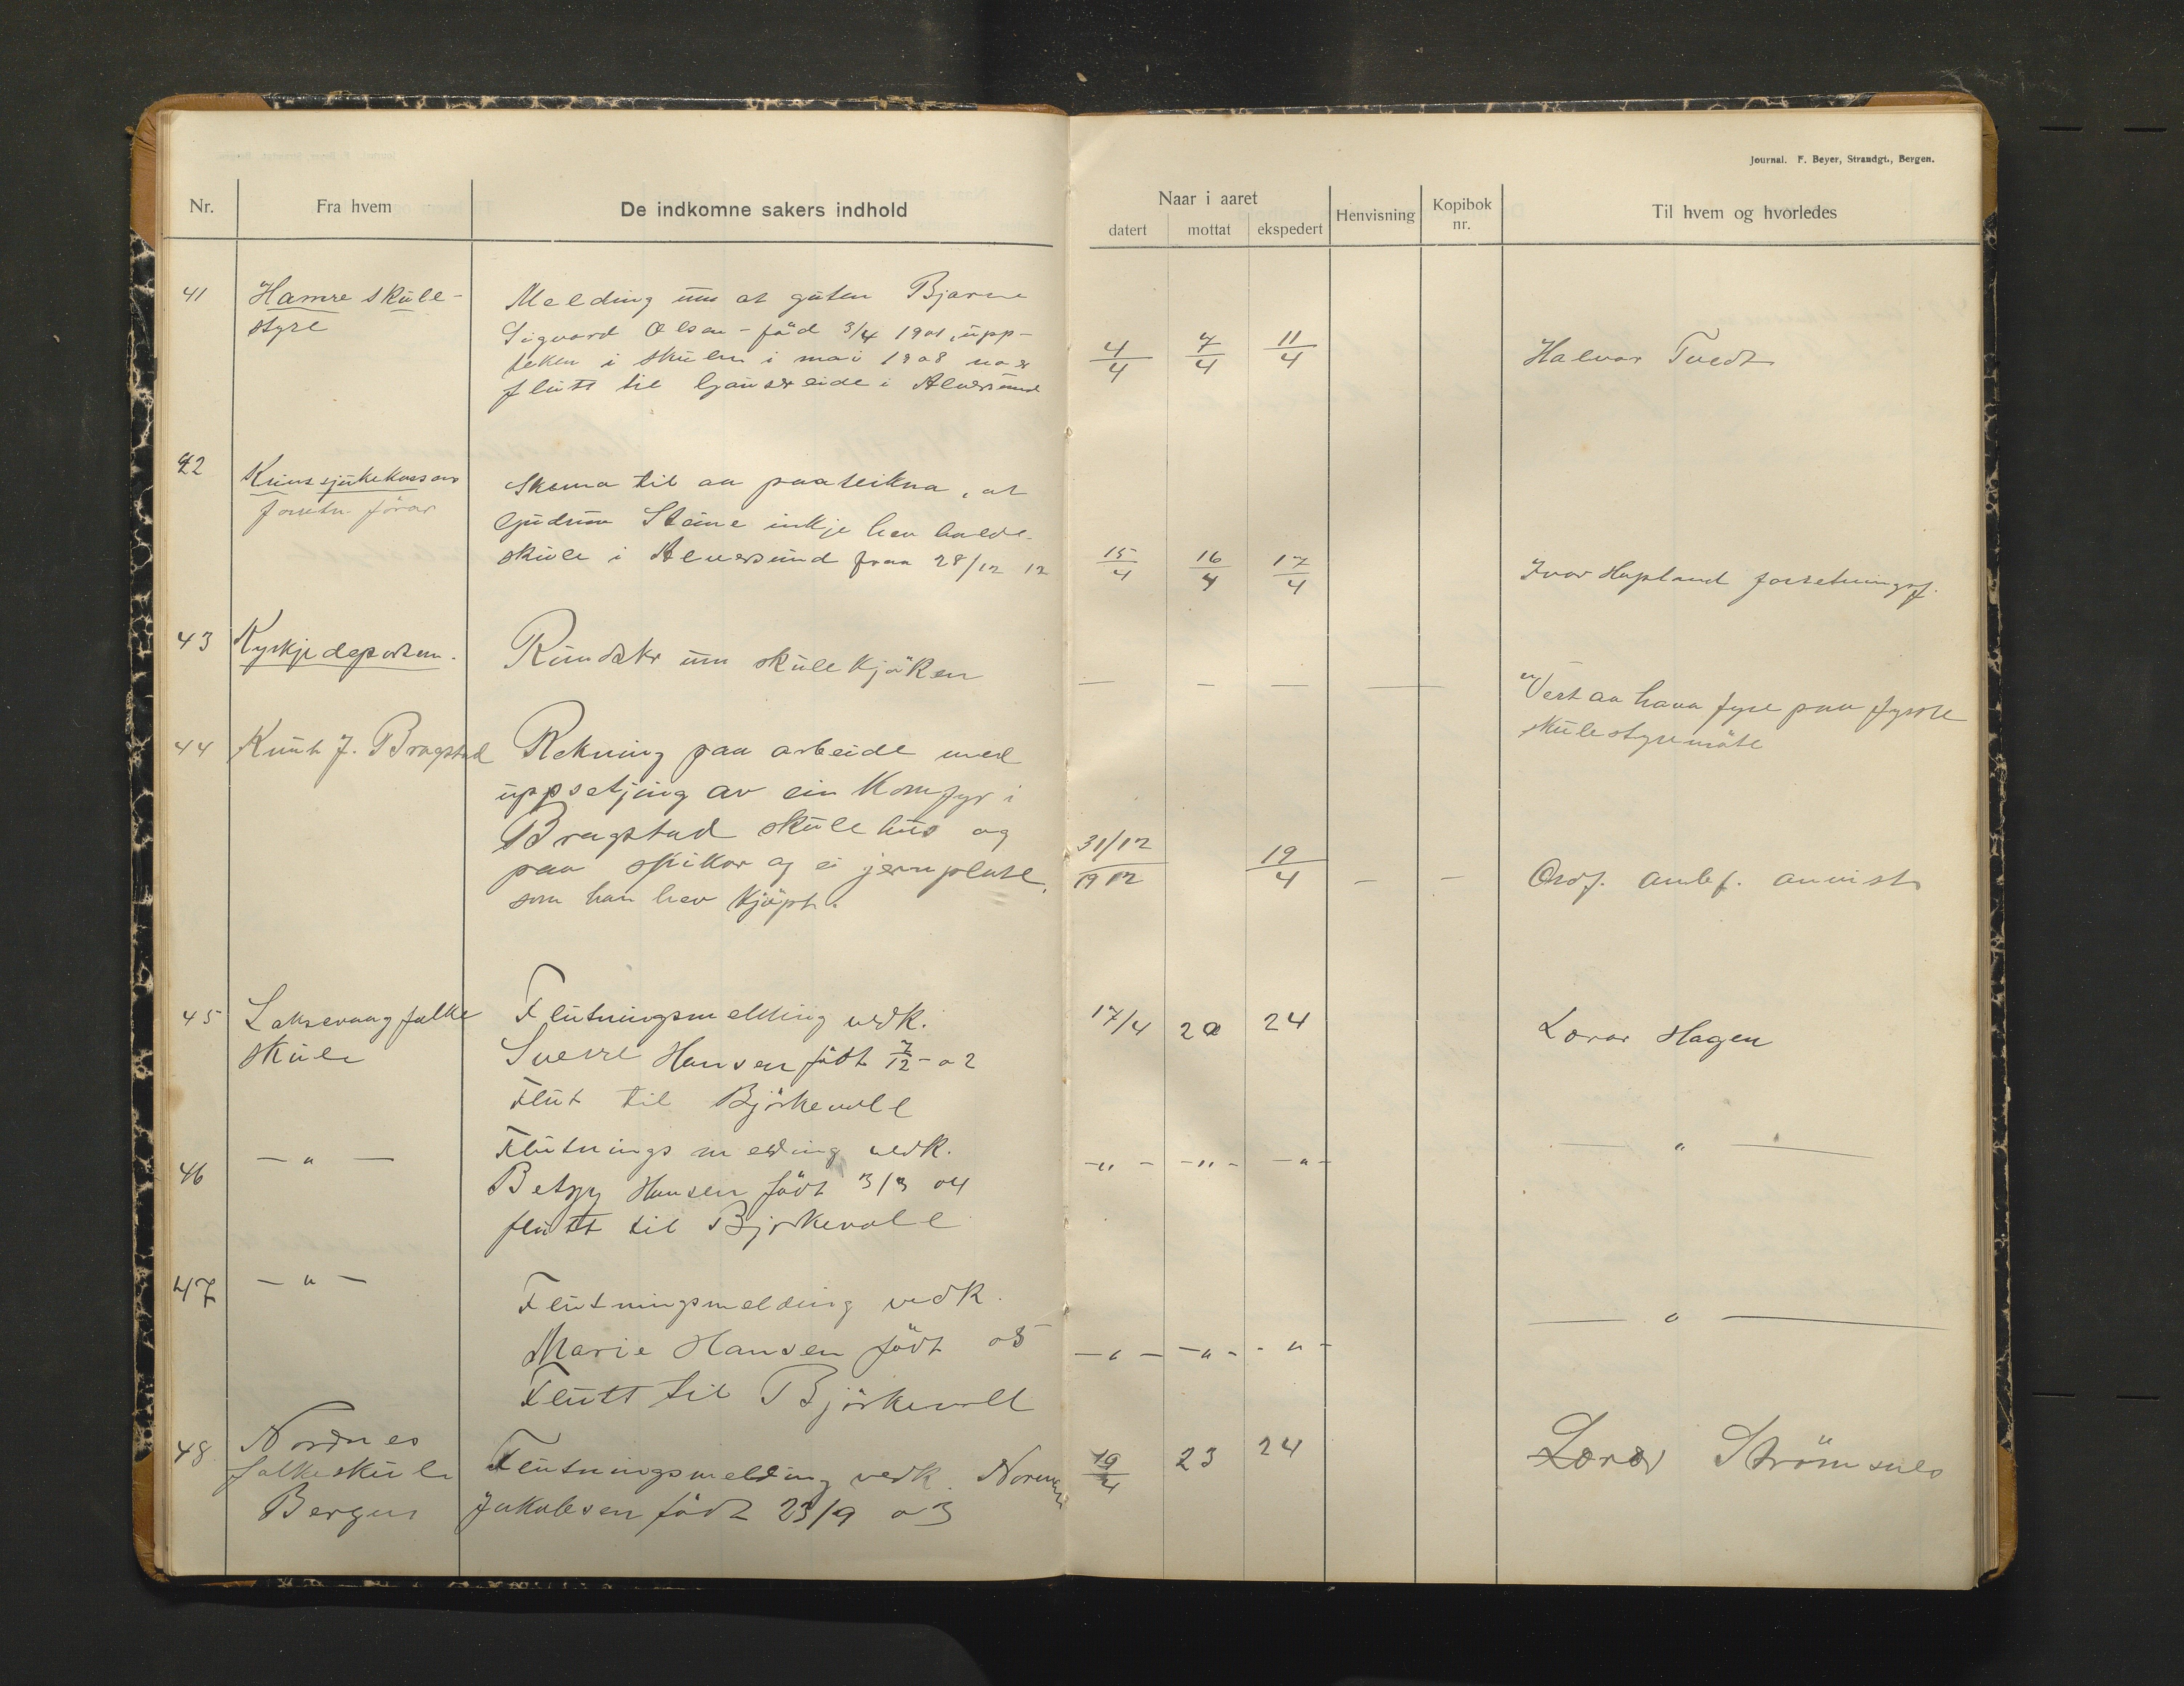 Journal. F. Beyer, Strandgt., Bergen.
Nr. Fra hvem De indkomne sakers indhold
Naar i aaret
datert mottat ekspedert Henvisning Kopibok nr. Til hvem og hvorledes
41 Hamre skule-
styre
Melding um at guten Bjarne
Sigvard Olsen - föd 3/4 1901, upp-
teken i skulen i mai 1908 no er
flutt til Gausereide i Alversund
4/4 7/4 11/4 Halvor Tvedt
42 Krinssjukekassens
forretn. förar
Skema til aa paateikna, at
Gudrun Steine inkje hev halde
skule i Alversund fraa 28/12 12
15/4 16/4 17/4 Ivar Hopland forretningsf.
43 Kyrkjedepartem.
Rundskr um skulekjöken
— — — —
Vert aa hava fyre paa fyrste
skulestyremöte
44 Knut J. Bragstad
Rekning paa arbeide med
uppsetjing av ein Komfyr i
Bragstad skulehus og
paa spikar og ei jernplate,
som han hev kjöpt.
31/12 1912 19/4 — — Ordf. anbef. anvist
45 Laksevaag folke
skule
Flutningsmelding vedk.
Sverre Hansen födt 7/12 - 02
Flut til Björkevoll
17/4 20 24 Lærar Hagen
46 — " —
Flutningsmelding vedk.
Betzy Hansen födt 3/3 04
flutt til Bjorkevoll
— " — — " — — " — — " —
47 — " —
Flutningsmelding vedk.
Marie Hansen födt 05
Flutt til Björkevoll
— " — — " — — " — — " —
48 Nordnes
folkeskule
Bergen
Flutningsmelding vedk. Norman
Jakobsen födt 23/9 03
19/4 23 24 Lærar Strömsnes